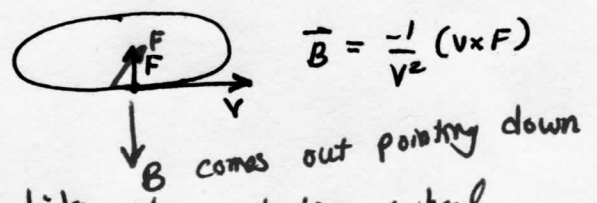 F
F
B⃗ = -1/V² (V×F)
V
B comes out pointing down